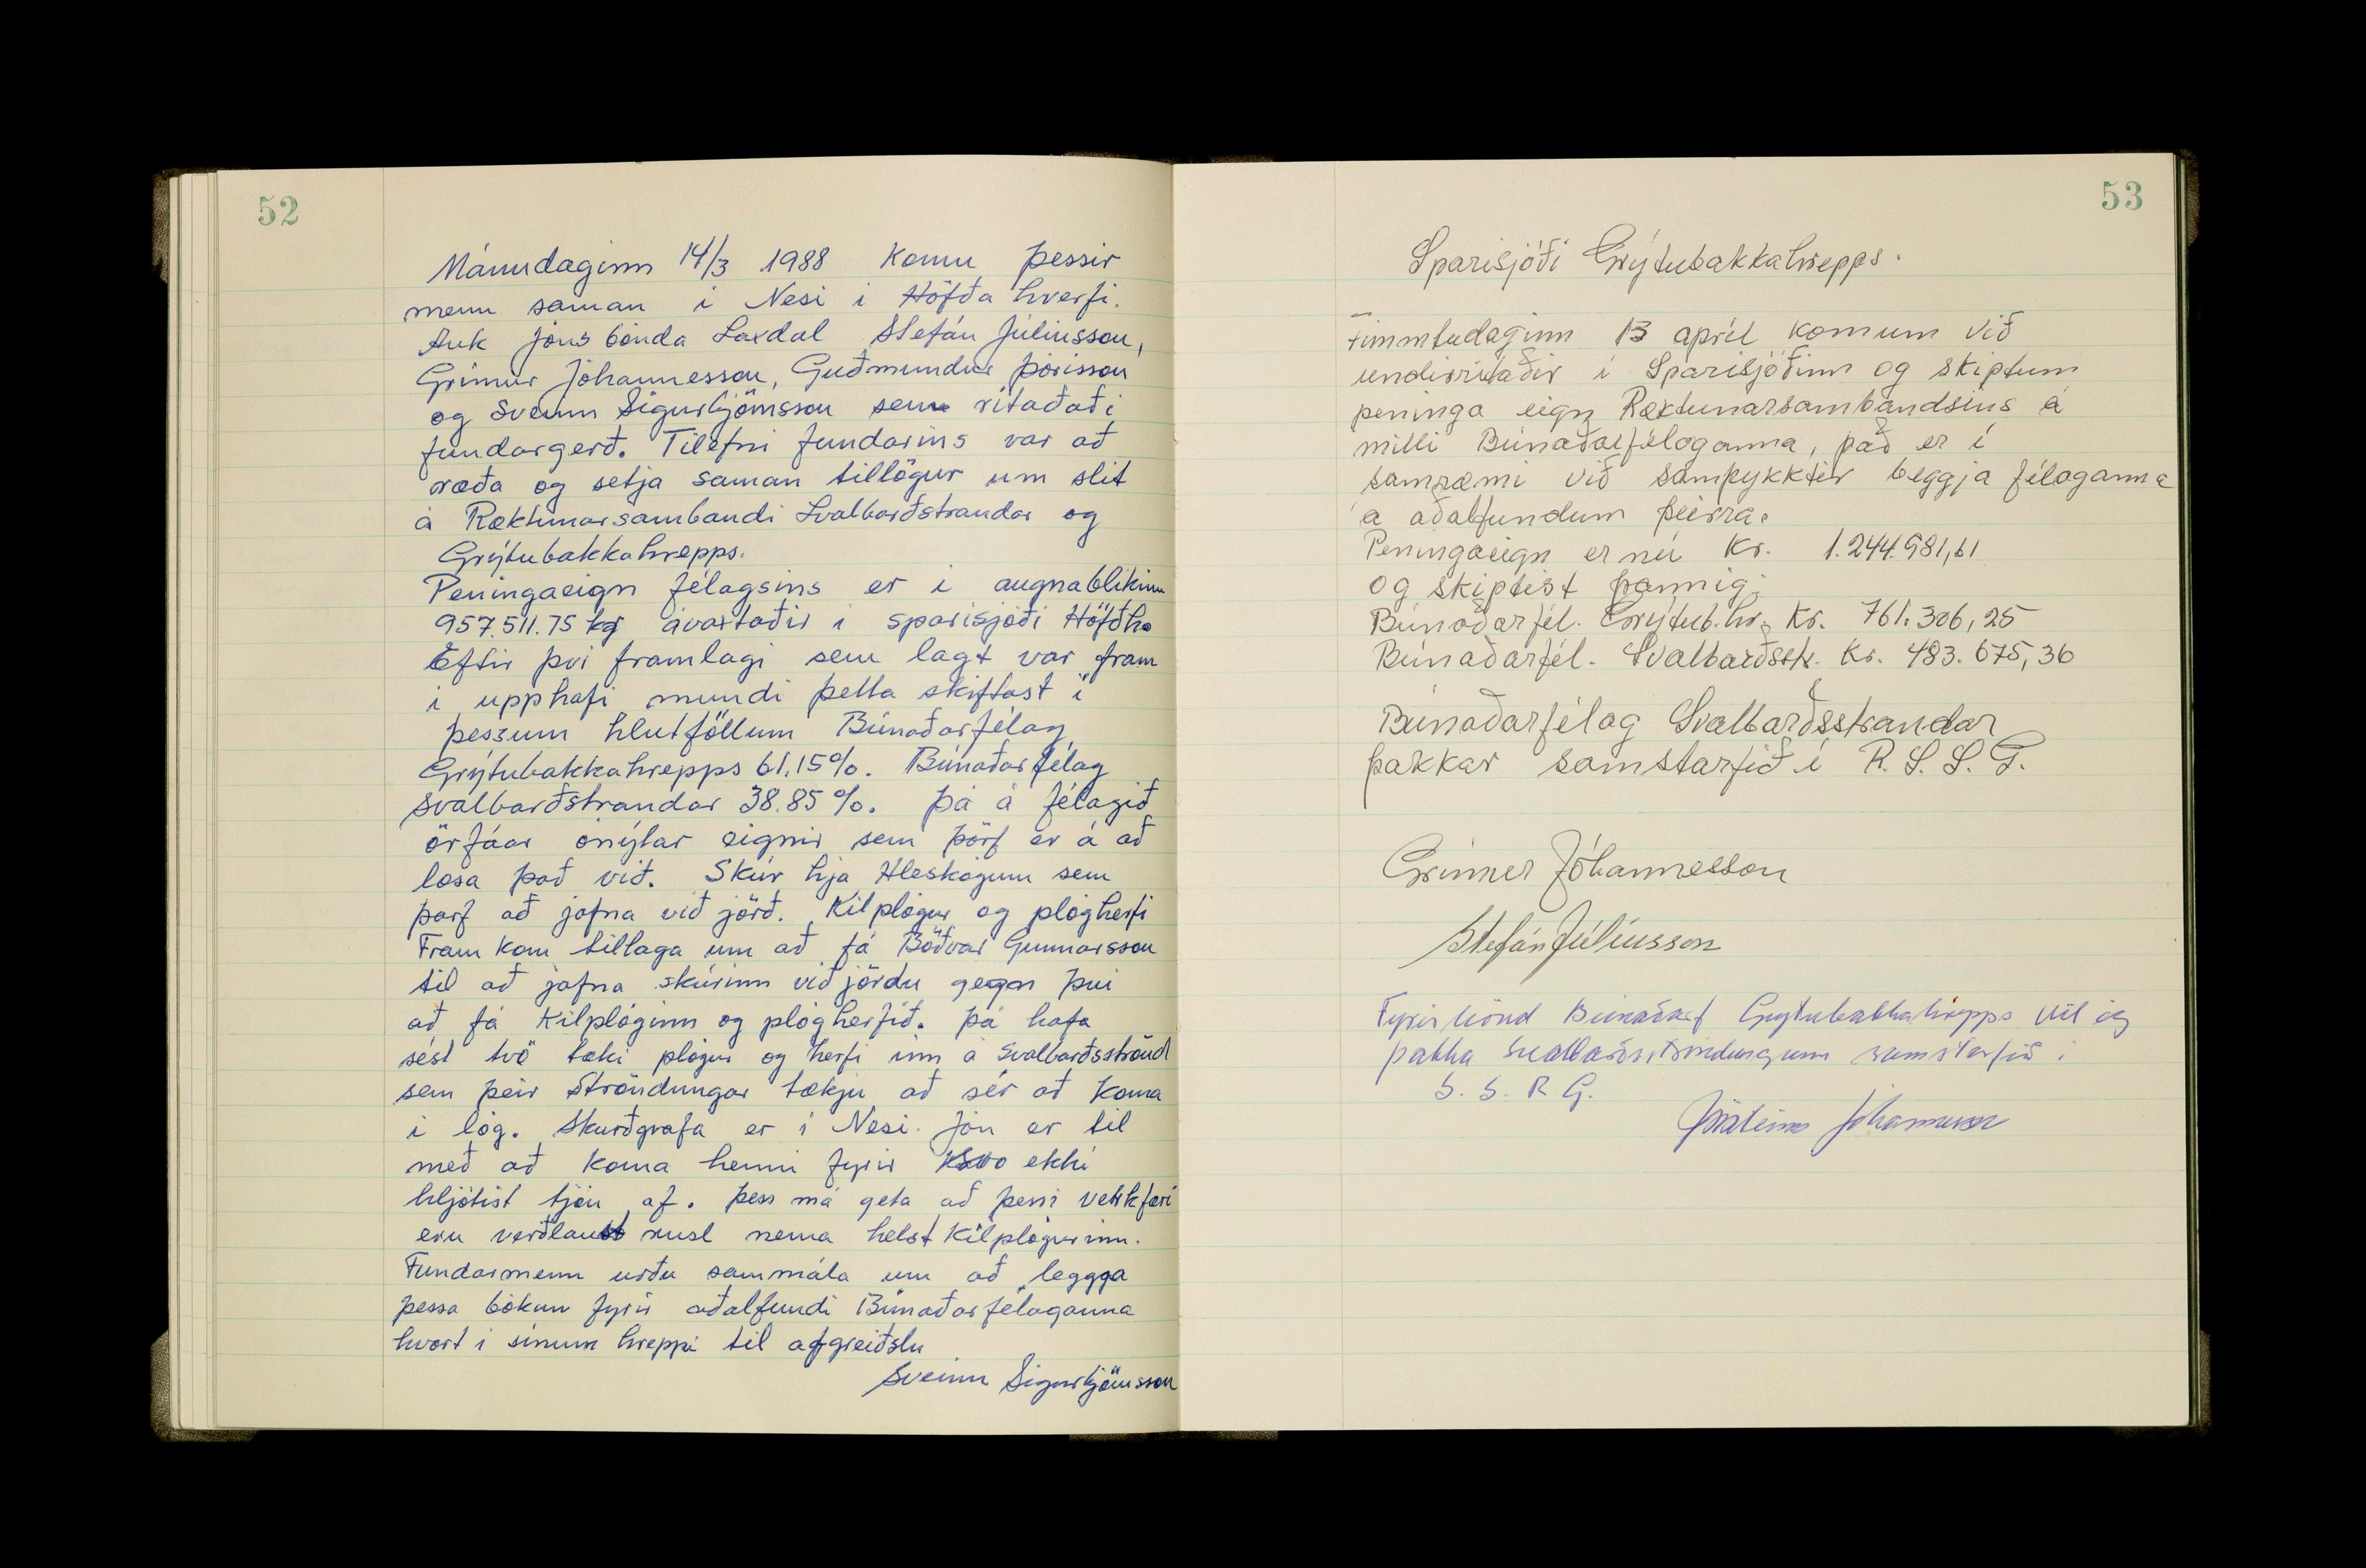 52
Mánudaginn 14/3 1988 komu þessir
menn saman í Nesi í Höfðahverfi.
Auk Jóns bónda Laxdal Stefán Júlíusson,
Grímur Jóhannesson, Guðmundur Þórisson
og Sveinn Sigurbjörnsson sem ritaðaði
fundargerð. Tilefni fundarins var að
ræða og setja saman tillögur um slit
á Ræktunarsambandi Svalbarðstrandar og
Grýtubakkahrepps.
Peningaeign félagsins er í augnablikinu
957.511.75 kr ávaxtaðir í sparisjóði Höfðh.
Eftir því framlagi sem lagt var fram
í upphafi mundi þetta skiftast í
þessum hlutföllum Búnaðarfélag
Grýtubakkahrepps 61.15%. Búnaðarfélag
Svalbarðstrandar 38.85%. Þá á félagið
örfáar ónýtar eignir sem þörf er á að
losa það við. Skúr hjá Hleskógum sem
þarf að jafna við jörð. Kílplógur og plógherfi
Fram kom tillaga um að fá Böðvar Gunnarsson
til að jafna skúrinn við jörðu gegn því
að fá Kílplóginn og plógherfið. Þá hafa
sést tvö tæki plógur og herfi inn á Svalbarðsströnd
sem þeir Ströndungar tækju að sér að koma
í lóg. Skurðgrafa er í Nesi. Jón er til
með að koma henni fyrir svo ekki
hljótist tjón af. Þess má geta að þessi verkfæri
eru verðlaust rusl nema helst Kílplógurinn.
Fundarmenn urðu sammála um að leggga
þessa bókun fyrir aðalfundi Búnaðarfélaganna
hvort í sínum hreppi til afgreiðslu
Sveinn Sigurbjörnsson
53
Sparisjóði Grýtubakkahrepps.
Fimmtudaginn 13 apríl komum við
undirritaðir í Sparisjóðinn og skiptum
peninga eign Ræktunarsambandsins á
milli Búnaðarfélaganna, það er í
samræmi við samþykktir beggja félaganna
á aðalfundum þeirra.
Peningaeign er nú kr. 1.244.981,61
og skiptist þannig:
Búnaðarfél. Grýtub.hr. Kr. 761.306,25
Búnaðarfél. Svalbarðsstr. Kr. 483.675,36
Búnaðarfélag Svalbarðsstrandar
þakkar samstarfið í R. S. S. G.
Grímur Jóhannesson
Stefán Júlíusson
Fyrir hönd Búnaðarf Grýtubakkahrepps vil ég
þakka Svalbarðsströndungum samstarfið í
S. S. R G.
Jóhannsson